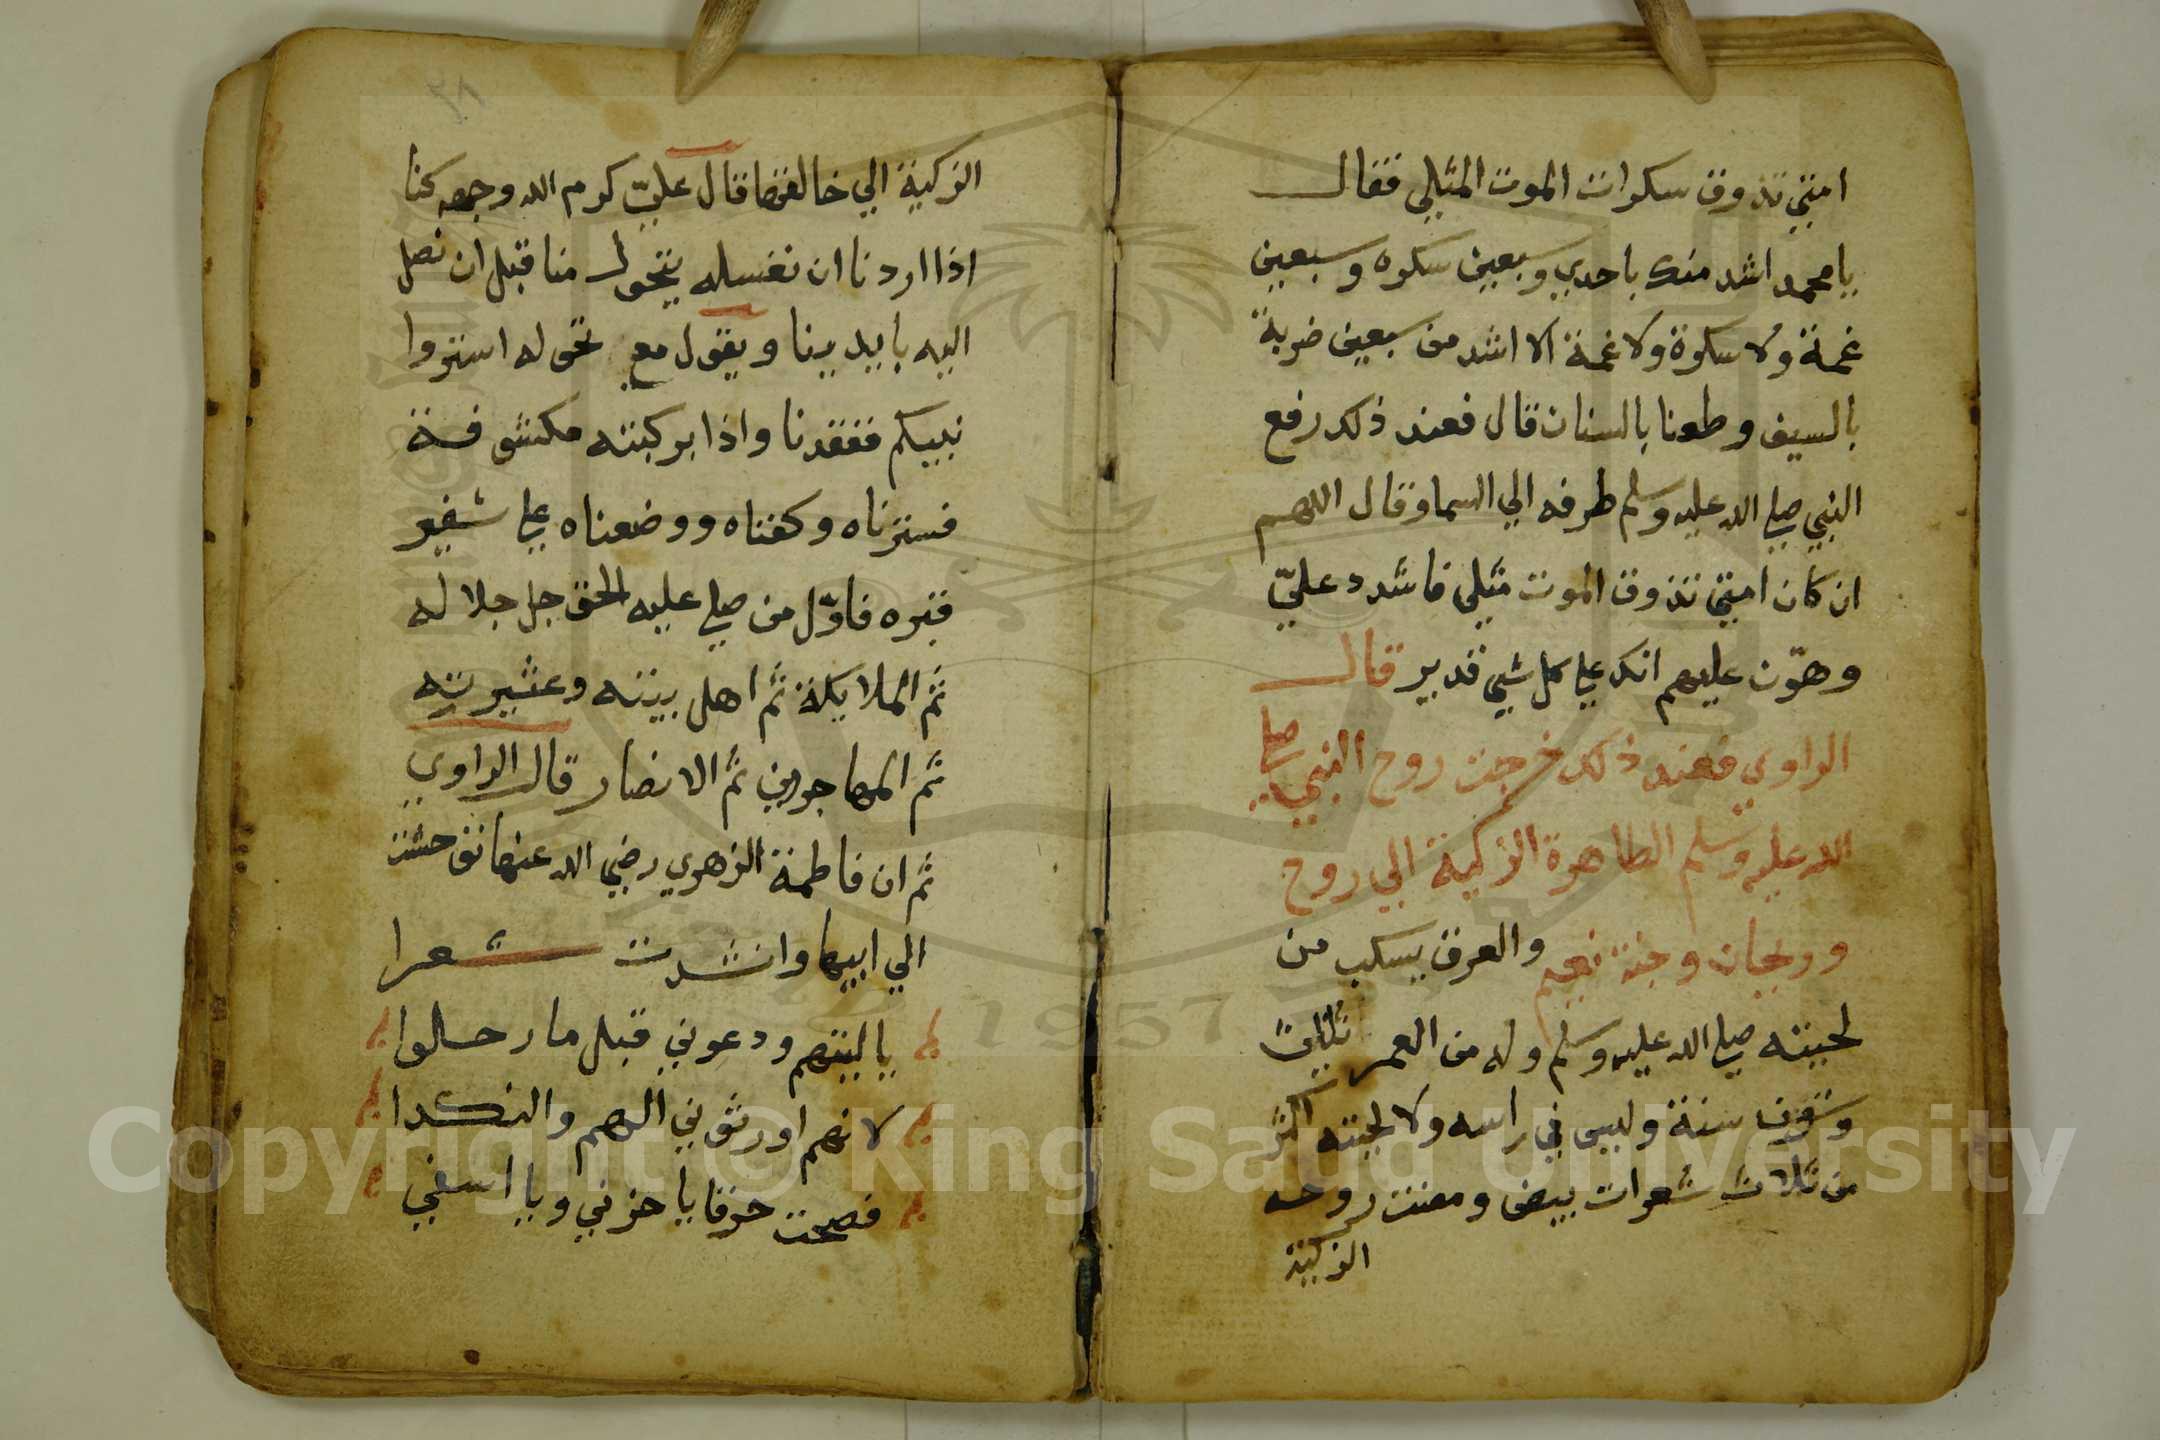 امتي تذوق سكرات الموت المثلي فقال
يا محمد اشد منك باحدي وسبعين سكره وسبعين
غمة ولا سكرة ولا غمة الا اشد من سبعين ضربة
بالسيف وطعنا بالسنان قال فعند ذلك رفع
النبي صلي الله عليه وسلم طرفه الي السما وقال اللهم
ان كان امتي تذوق الموت مثلي فاشدد عليّ
وهوّن عليهم انك علي كل شي قدير قال
الراوي فعند ذلك خرجت روح النبي صلي
الله عليه وسلم الطاهرة الزكية الي روح
وريحان وجنة نعيم والعرق يسكب من
لحيته صلي الله عليه وسلم وله من العمر ثلاث
وستون سنة وليس في راسه ولا لحيته اكثر
من ثلاث شعرات بيض ومضت روحه
الزكية
٢٨
الزكية الي خالقها قال عليّ كرم الله وجهه كنا
اذا اردنا ان نغسله يتحول منا قبل ان نصل
اليه بايدينا ويقول مع تحوله استروا
نبيكم ففقدنا واذا بركبته مكشوفة
فسترناه وكفناه ووضعناه علي شفير
قبره فاوّل من صلي عليه الحق جل جلاله
ثم الملايكة ثم اهل بيته وعشيرته
ثم المهاجرين ثم الانصار قال الراوي
ثم ان فاطمة الزهري رضي الله عنها توحشت
الي ابيها وانشدت شعرا
ياليتهم ودعوني قبل ما رحلوا
لانهم اورثوني الهم والنكدا
فصحت حرقا يا حزني ويا اسفي
Copyright © King Saud University
1957